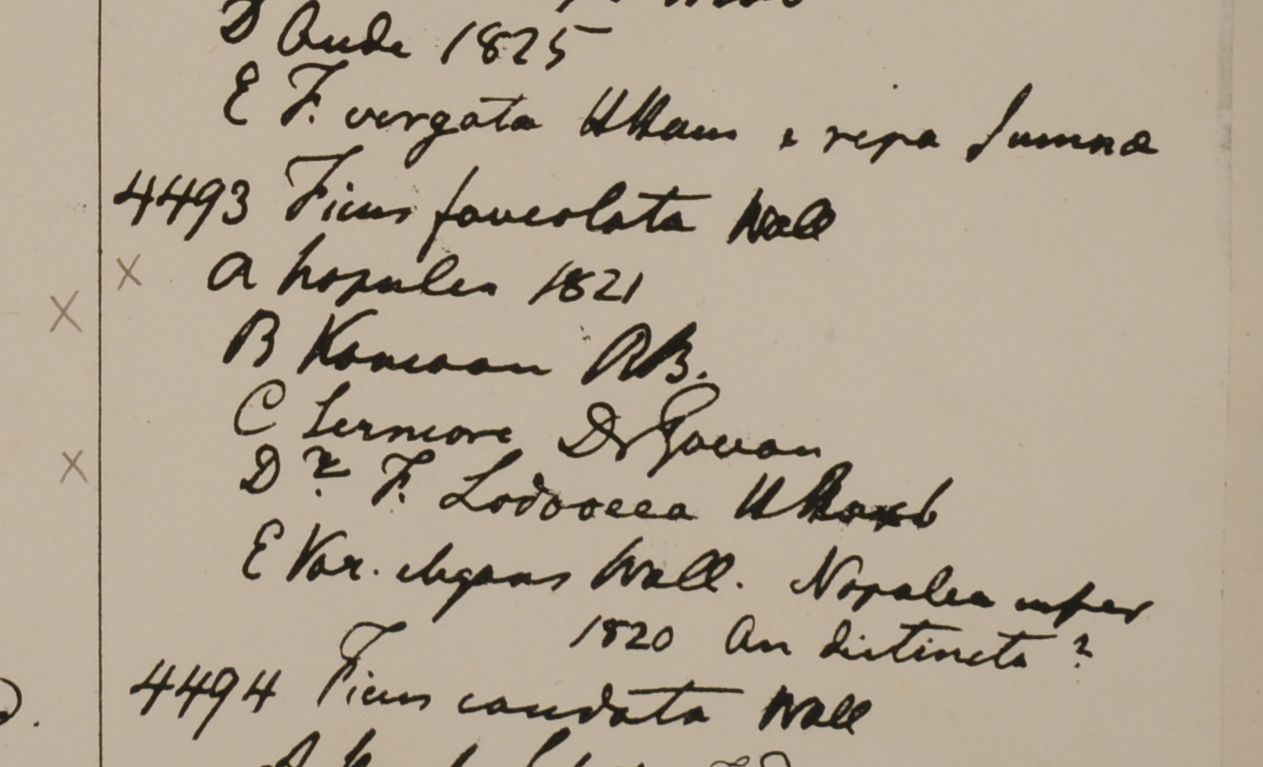 D Oude 1825
E F. virgata HHam e ripa Jumnæ
4493 Ficus foveolata Wall
A Nopalea 1821
B Kamaon RB.
C Sermore Dr Govan
D ? F. Lodooeea HRoxb
E Var. elegans Wall. Nopalea super
1820 An distincta ?
4494 Ficus caudata Wall